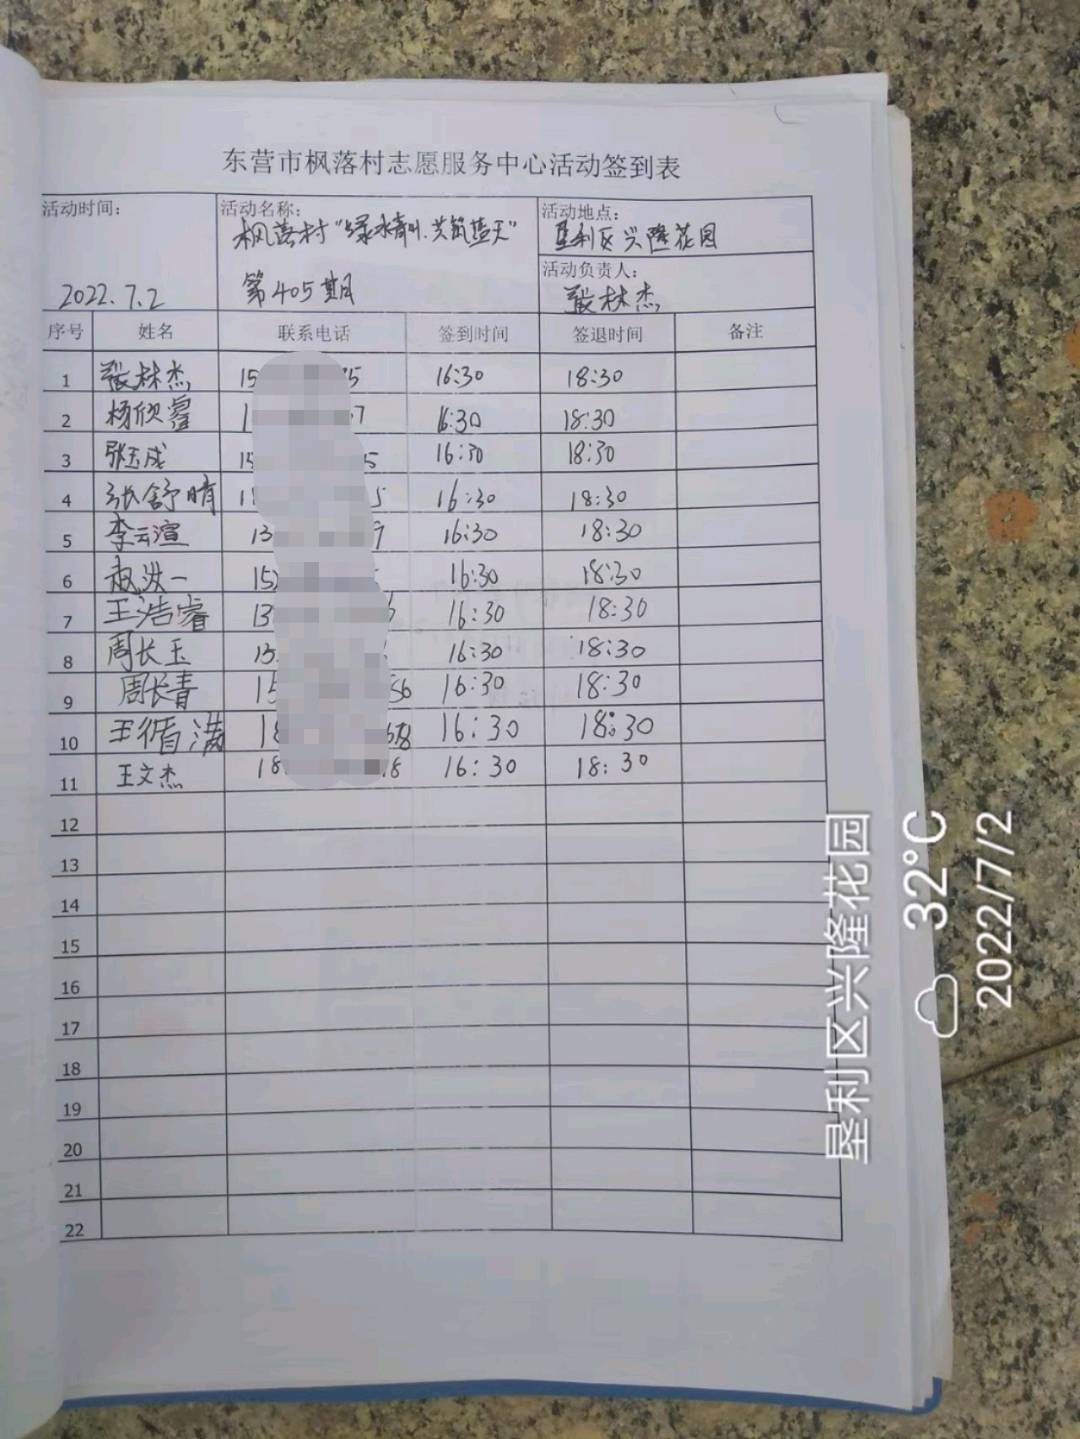 东营市枫落村志愿服务中心活动签到表
活动时间： 2022.7.2
活动名称： 枫落村“绿水青山、共筑蓝天” 第405期
活动地点： 垦利区兴隆花园
活动负责人： 张林杰
序号 姓名 联系电话 签到时间 签退时间 备注
1 张林杰 15 5 16:30 18:30
2 杨欣睿 1 7 16:30 18:30
3 张玉成 15 5 16:30 18:30
4 张舒晴 1 5 16:30 18:30
5 李云渲 13 9 16:30 18:30
6 洪一 15 16:30 18:30
7 王浩睿 13 16:30 18:30
8 周长玉 13 16:30 18:30
9 周长青 15 56 16:30 18:30
10 王循满 18 68 16:30 18:30
11 王文杰 18 8 16:30 18:30
12
13
14
15
16
17
18
19
20
21
22
垦利区兴隆花园
32°C
2022/7/2